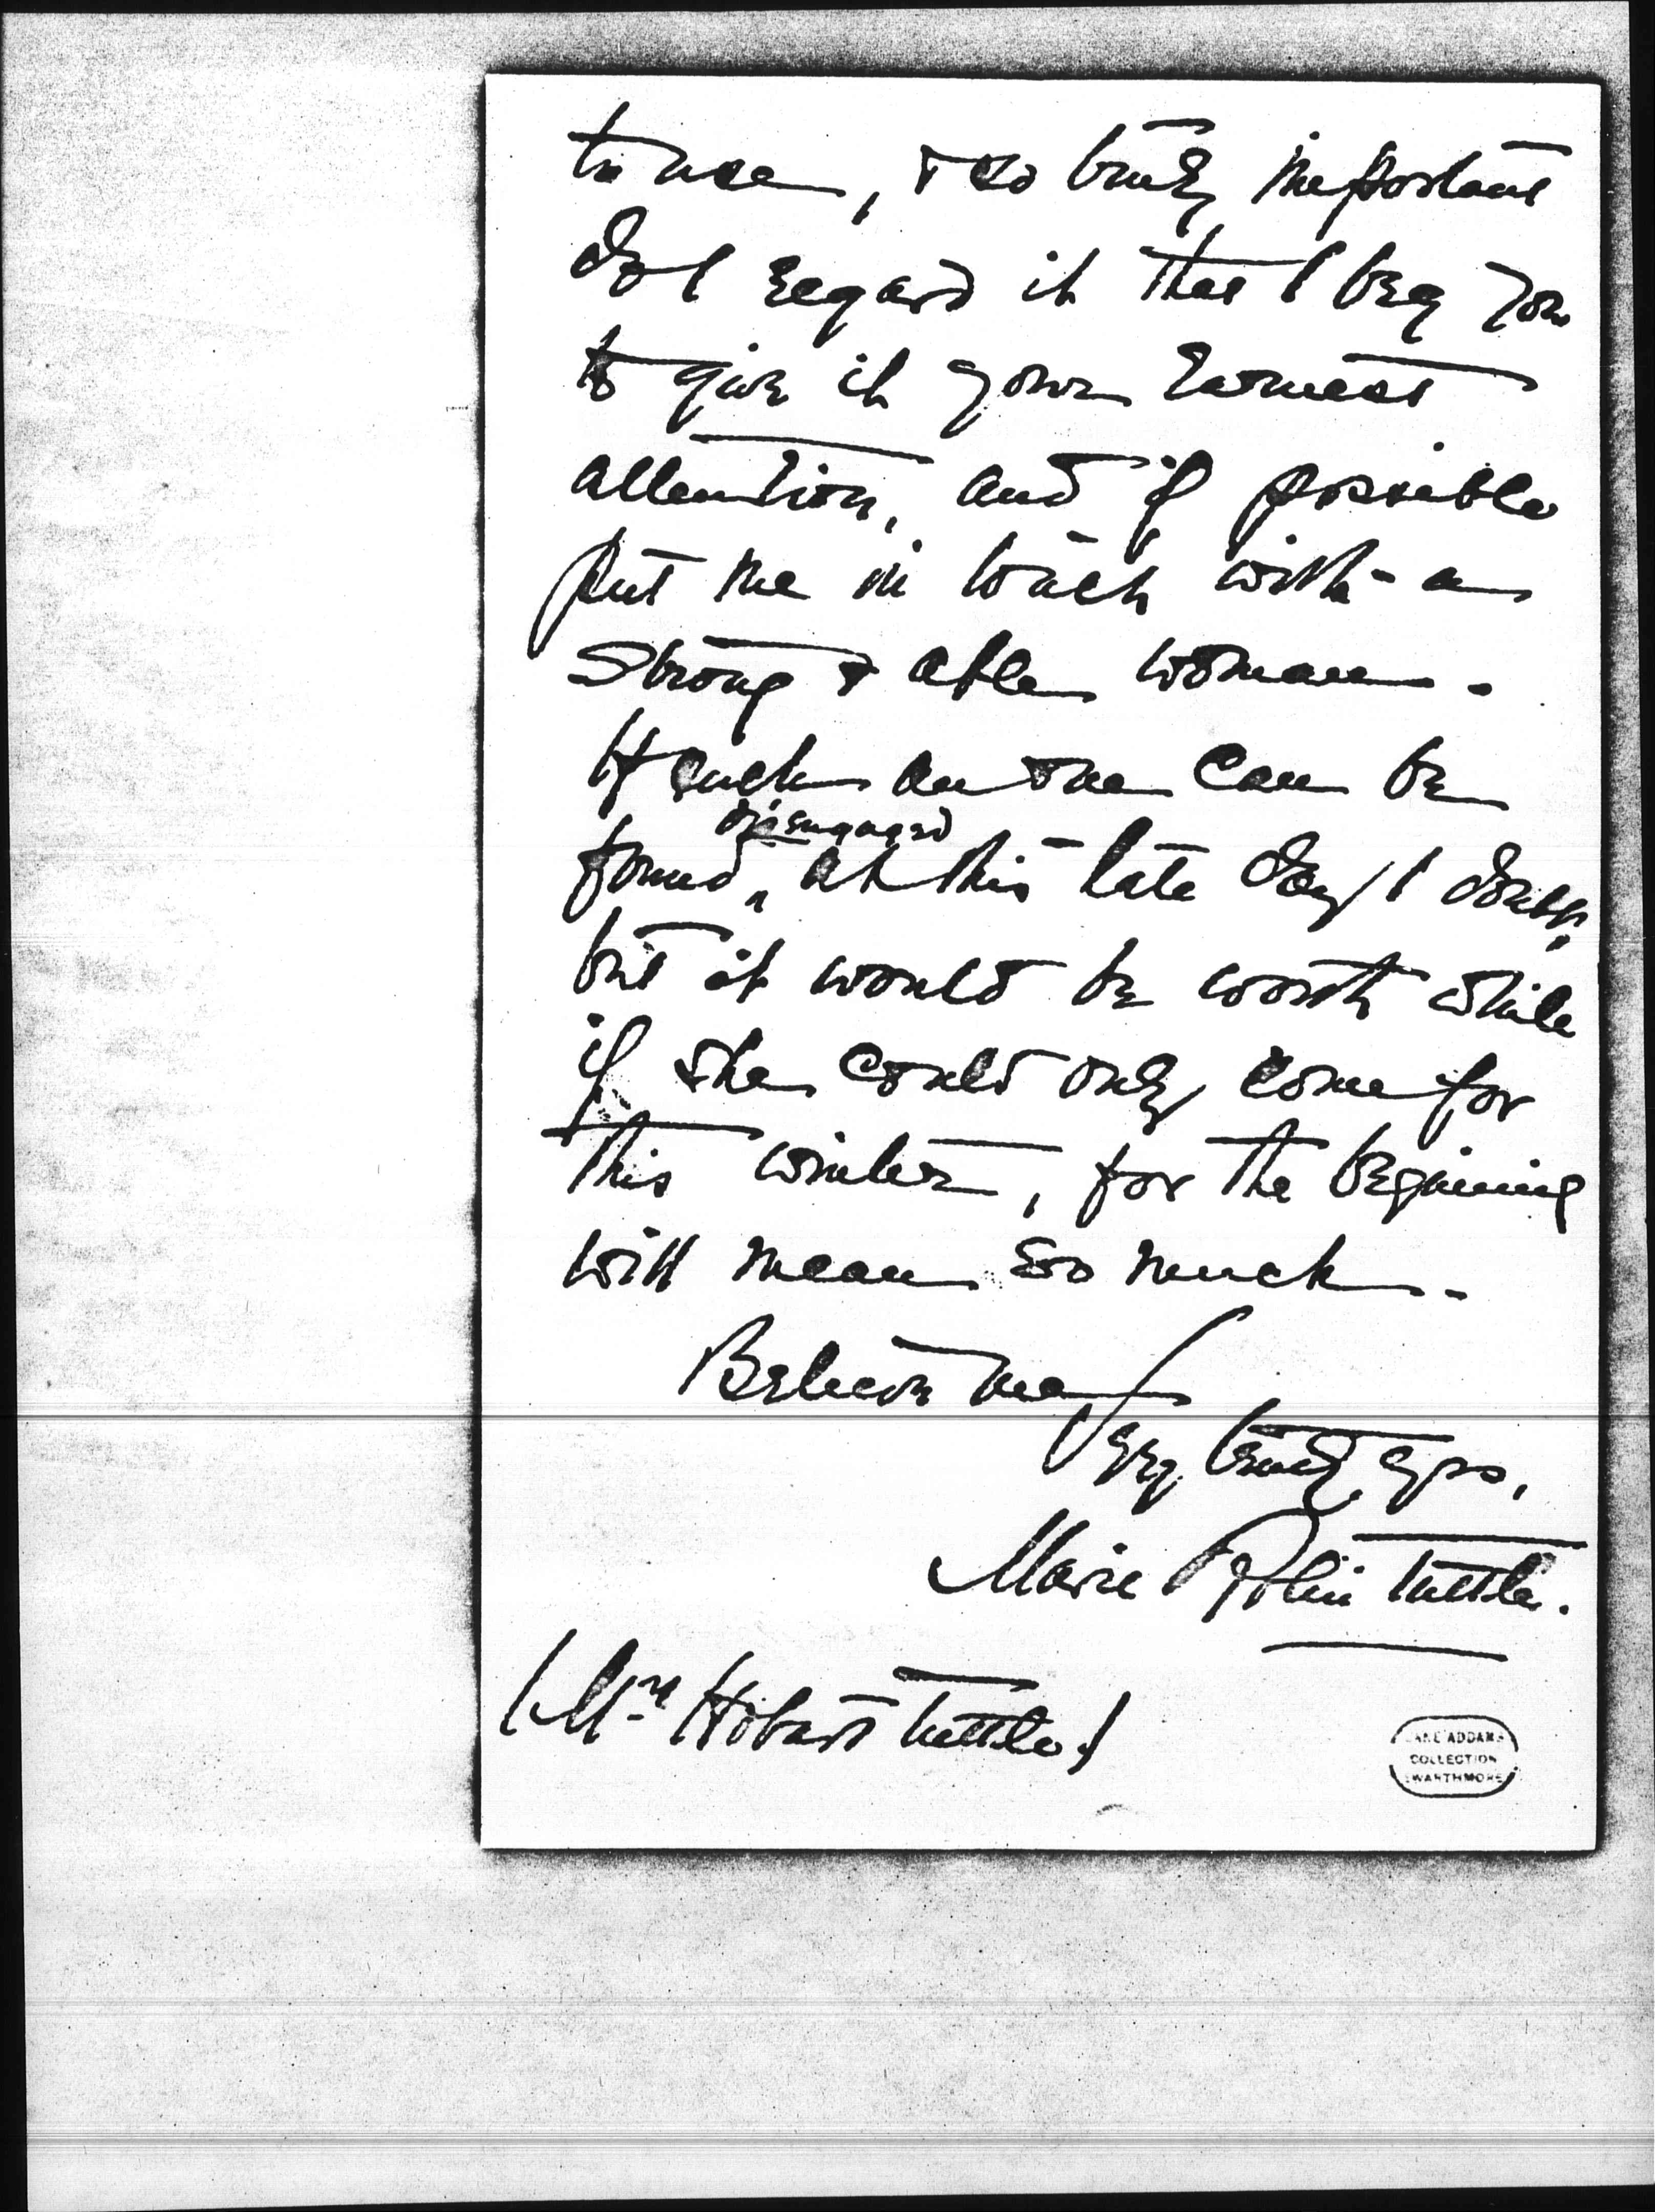 to use, & so truly important
do I regard it that I beg you
to give it your earnest
attention, and if possible
put me in touch with - a
strong & able woman -
If such an one can be
disengaged
found ‸ at this late day I doubt,
but it would be worth while
if she could only come for
this winter, for the beginning
will mean so much -
Believe me
Very truly yrs,
Marie Tuttle.
(Mrs Hobart Tuttle)
JANE ADDAMS
COLLECTION
SWARTHMORE